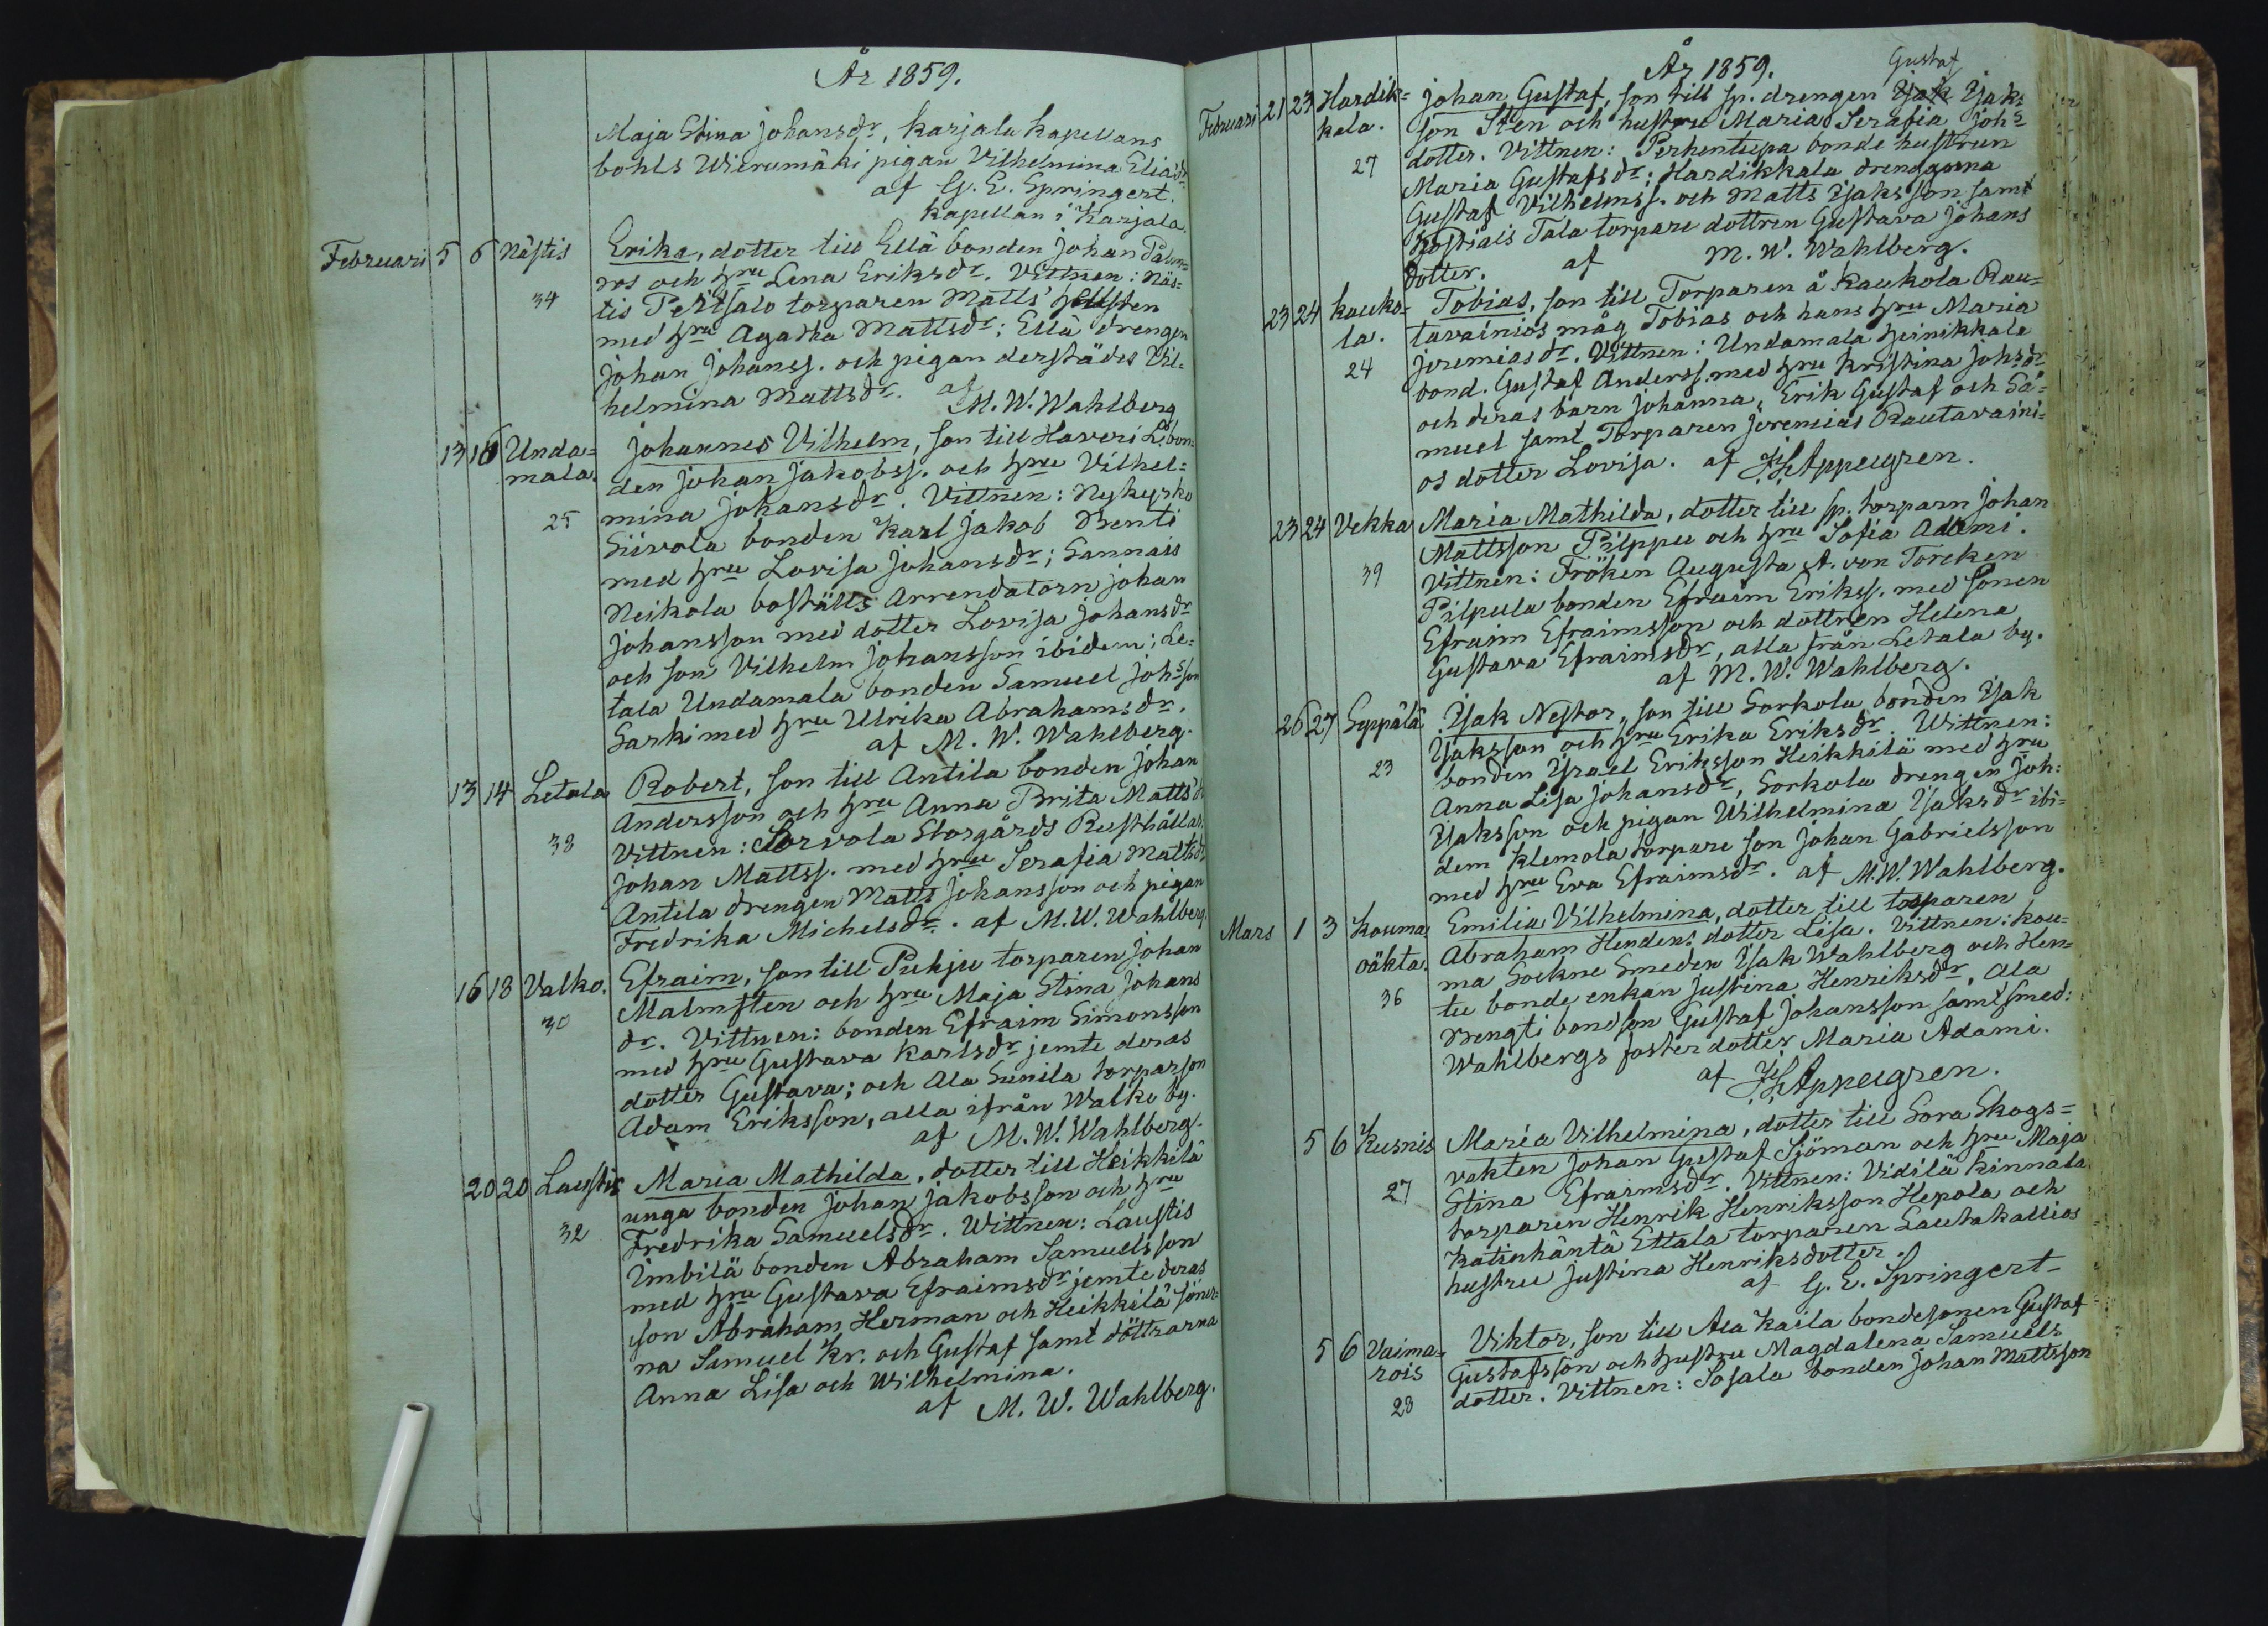 År 1859.
Maja Stina Johansdr, Karjala Kapellans
bohls Wierumäki pigan Vilhelmina Eliasdr
af G. E. Springert.
Kapellan i Karjala.
Februari 5 6 Nästis Erika, dotter till Ellä bonden Johan Palm=
ros och hru Lena Eriksdr. Vittnen: Näs=
34 tis Peltsalo torparen Matts Hellsten
med hru Agatha Mattsdr; Ellä drengen
Johan Johanss. och pigan derstädes Vil=
helmina Mattsdr. af
M. W. Wahlberg
13 16 Unda= Johannes Vilhelm, son till Haveri L. bon=
mala. den Johan Jakobss. och hru Vilhel=
mina Johansdr. Vittnen: Nykyrko
25 Siivola bonden Karl Jakob Benti
med hru Lovisa Johansdr; Sannais
Neikola boställs Arrendatorn Johan
Johansson med dotter Lovisa Johansdr
och son Vilhelm Johansson ibidem; Le=
tala Undamala bonden Samuel Johsson
Sarki med hru Ulrika Abrahamsdr.
af M. W. Wahlberg.
13 14 Letala Robert, son till Antila bonden Johan
Andersson och hru Anna Brita Mattsdr
38 Vittnen: Sorvola Storgårds Rusthållar.
Johan Mattss. med hru Serafia Mattsdr,
Antila drengen Matts Johansson och pigan
Fredrika Michelsdr. af M. W. Wahlberg.
16 18 Valko. Efraim, son till Puhju torparen Johan
Malmsten och hru Maja Stina Johans
30 dr. Vittnen: bonden Efraim Simonsson
med hru Gustava Karlsdr jemte deras
dotter Gustava; och Ala Sunila torparson
Adam Eriksson, alla ifrån Walko by.
af M. W. Wahlberg.
20 20 Laustis Maria Mathilda, dotter till Heikkilä
unga bonden Johan Jakobsson och hru
32 Fredrika Samuelsdr. Wittnen: Laustis
Imbilä bonden Abraham Samuelsson
med hru Gustava Efraimsdr jemte deras
son Abraham Herman och Heikkilä söner=
na Samuel Kr. och Gustaf samt döttrarna
Anna Lisa och Wilhelmina.
af M. W. Wahlberg.
År 1859.
Gustaf
Februari 21 23 Hardik= Johan Gustaf, son till sp. drengen Isak Isaks
kala. son Sten och hustru Maria Serafia Johs
27 dotter. Vittnen: Perhentupa bonde hustrun
Maria Gustafsdr; Hardikkala drengarna
Gustaf Vilhelmss. och Matts Isaksson samt
Tala torpare dottren Gustava Johans
dotter. af M. W. Wahlberg.
23 24 Kauko= Tobias, son till Torparen å Kaukola Rau=
la. tavainios måg Tobias och hans hru Maria
24 Jeremiasdr. Vittnen: Undamala Heinikkala
bond. Gustaf Anderss. med hru Kristina Johsdr
och deras barn Johanna, Erik Gustaf och Sa=
muel samt Torparen Jeremias Rautavaini=
os dotter Lovisa. af Appelgren.
23 24 Vekka Maria Mathilda, dotter till sp. torparn Johan
Mattsson Pilppu och hru Sofia Adami.
39 Vittnen: Fröken Augusta A. von Torcken
Pilpula bonden Efraim Erikss. med sonen
Efraim Efraimsson och dottren Helena
Gustava Efraimsdr, alla från Letala by.
af M. W. Wahlberg.
26 27 Seppälä Isak Nestor, son till Sorkola bonden Isak
Isaksson och hru Erika Eriksdr. Wittnen:
23 bonden Israel Eriksson Heikkilä med hru
Anna Lisa Johansdr, Sorkola drengen Joh:
Isaksson och pigan Wilhelmina Isaksdr ibi=
dem Klemola torpare son Johan Gabrielsson
med hru Eva Efraimsdr. af M. W. Wahlberg.
Mars 1 3 Kouma Emilia Vilhelmina, dotter till torparen
oäkta. Abraham Hendens dotter Lisa. Vittnen: Kou=
ma Sockne Smeden Isak Wahlberg och Hen=
36 tu bonde enkan Justina Henriksdr, Ala
Bengti bondson Gustaf Johansson samt smed:
Wahlbergs foster dotter Maria Adami.
af Appelgren.
5 6 Kusnis Maria Vilhelmina, dotter till Sora Skogs=
vakten Johan Gustaf Sjöman och hru Maja
27 Stina Efraimsdr. Vittnen: Vidilä Kinnala
torparen Henrik Henriksson Hepola och
Katinhäntä Ettala torparen Lautakallios
hustru Justina Henriksdotter.
af G. E. Springert
5 6 Vaima= Viktor, son till Ala Kaila bondesonen Gustaf
rois Gustafsson och hustru Magdalena Samuels
28 dotter. Vittnen: Sosala bonden Johan Mattsson